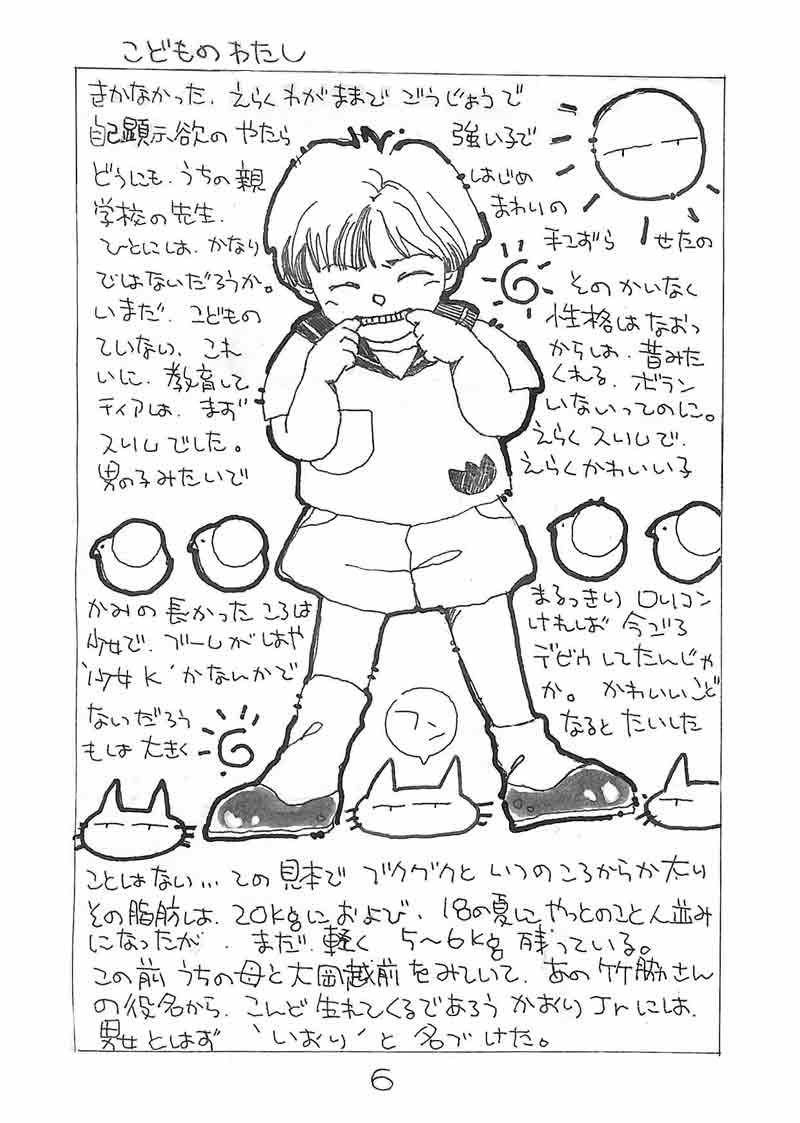 こどものわたし
きかなかった、えらくわがままで ごうじょうで
自己顕示欲の やたら 強い子で
どうにも、うちの親 はじめ
学校の先生、 まわりの
ひとには、かなり 手こずらせたの
ではないだろうか。 そのかいなく
いまだ、こどもの 性格はなおっ
ていない、これ からは、昔みた
いに、教育して くれる、ボラン
ティアは、まず いないってのに。
スリムでした。 えらくスリムで、
男の子みたいで えらくかわいい子
かみの長かったころは まるっきりロリコン
少女で、ブームがはや ければ今ごろ
'少女K'かなんかで デビウしてたんじゃ
ないだろう か。かわいいこど
もは大きく なるとたいした
フン
ことはない…ての見本で ブクブクと いつのころからか太り
その脂肪は、20kgにおよび、18の夏にやっとのこと人並み
になったが、まだ、軽く 5〜6kg 残っている。
この前 うちの母と大岡越前をみていて、あの竹脇さん
の役名から、こんど生れてくるであろう かおりJrには、
男女とはず 'いおり'と名づけた。
6